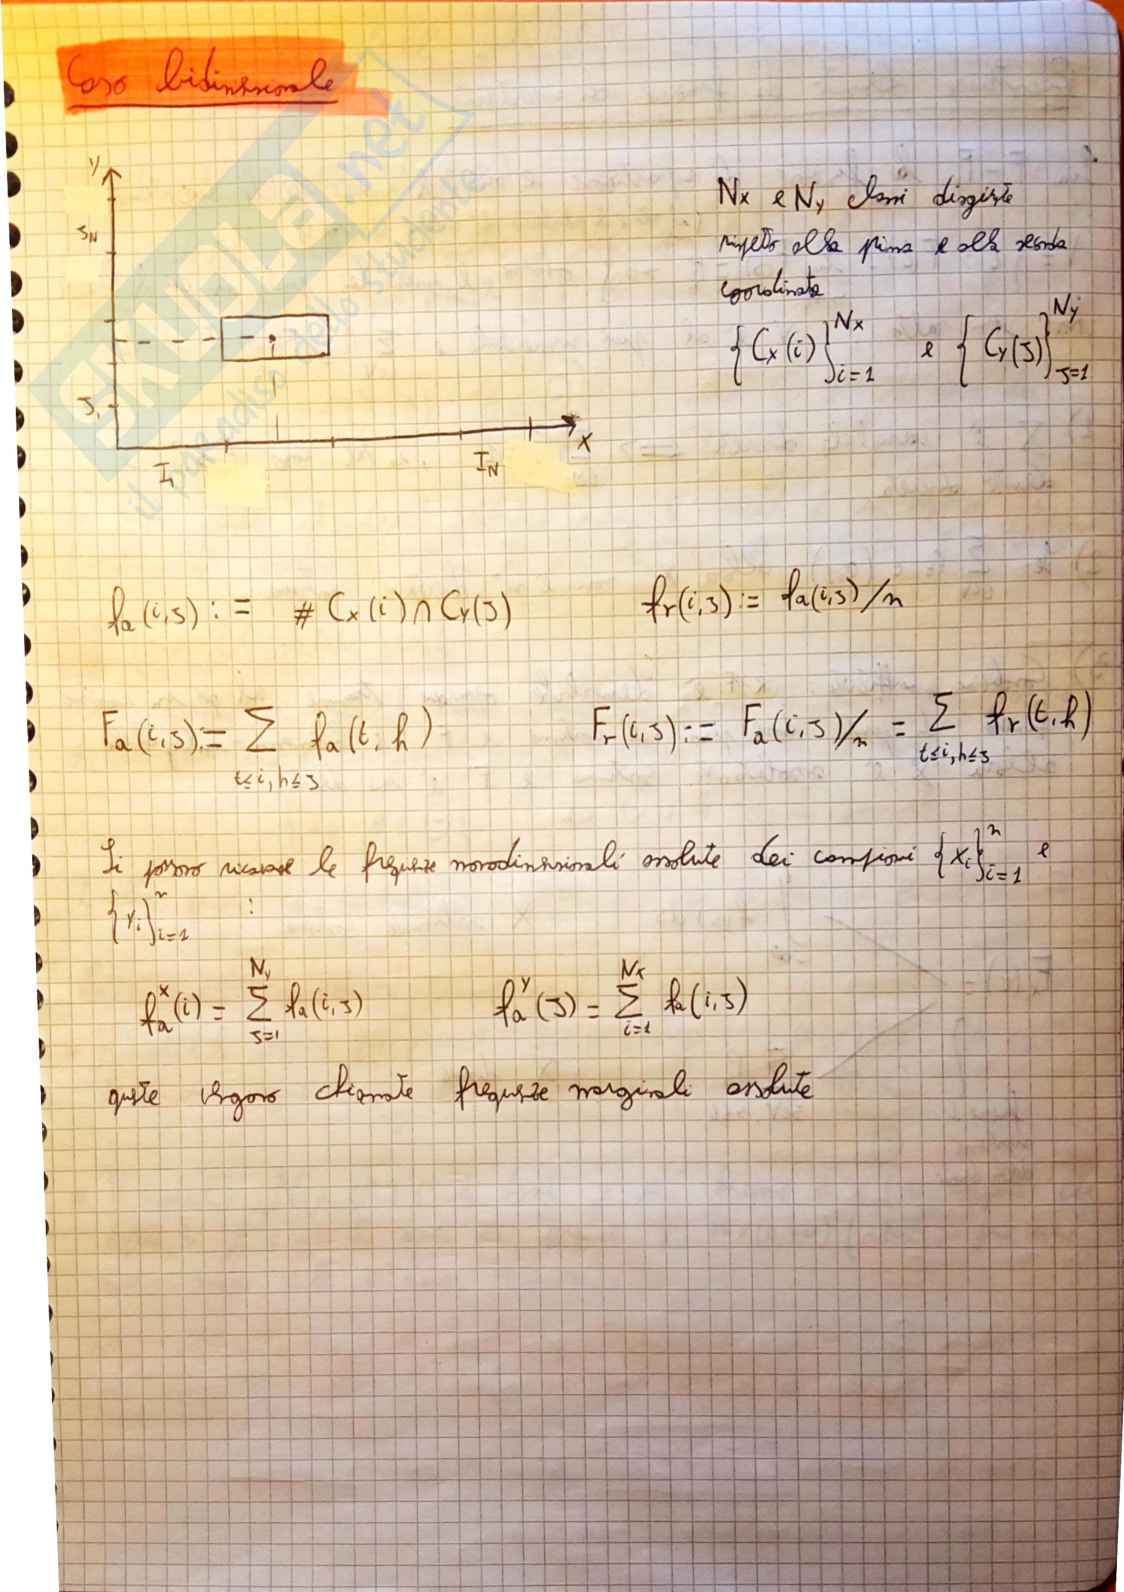 Caso bidimensionale
SKUOLA.net
il paradiso dello studente
y
J_N
J_1
I_1
I_N
x
N_x e N_y classi disgiunte
rispetto alla prima e alla seconda
coordinata
{C_x(i)}_{i=1}^{N_x} e {C_y(J)}_{J=1}^{N_y}
f_a(i,J) := # C_x(i) ∩ C_y(J)
f_r(i,J) := f_a(i,J)/n
F_a(i,J) := Σ_{t≤i, h≤J} f_a(t,h)
F_r(i,J) := F_a(i,J)/n = Σ_{t≤i, h≤J} f_r(t,h)
Si possono ricavare le frequenze monodimensionali assolute dei campioni {x_i}_{i=1}^{n} e
{y_i}_{i=1}^{n} :
f_a^x(i) = Σ_{J=1}^{N_y} f_a(i,J)
f_a^y(J) = Σ_{i=1}^{N_x} f_a(i,J)
queste vengono chiamate frequenze marginali assolute